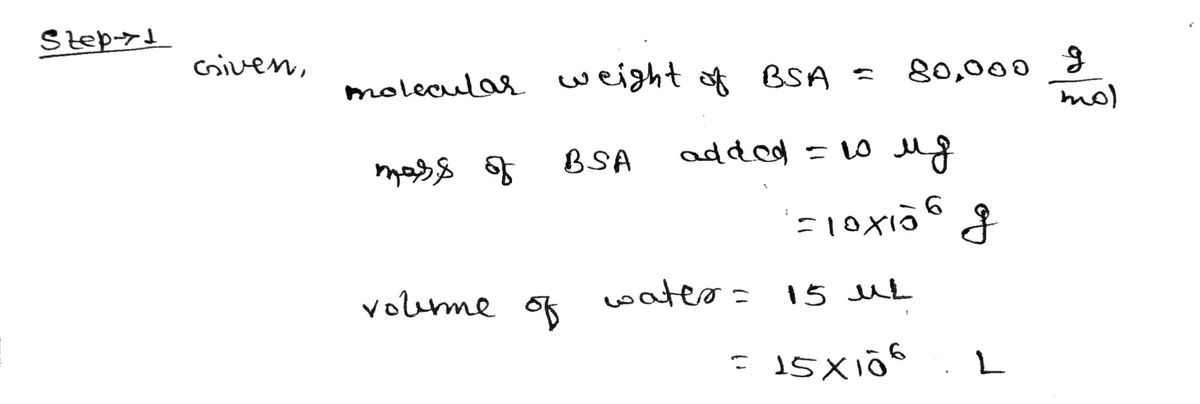 Step→1
Given,
molecular weight of BSA = 80,000 g/mol
mass of BSA added = 10 μg
= 10×10⁻⁶ g
volume of water = 15 μL
= 15×10⁻⁶ L